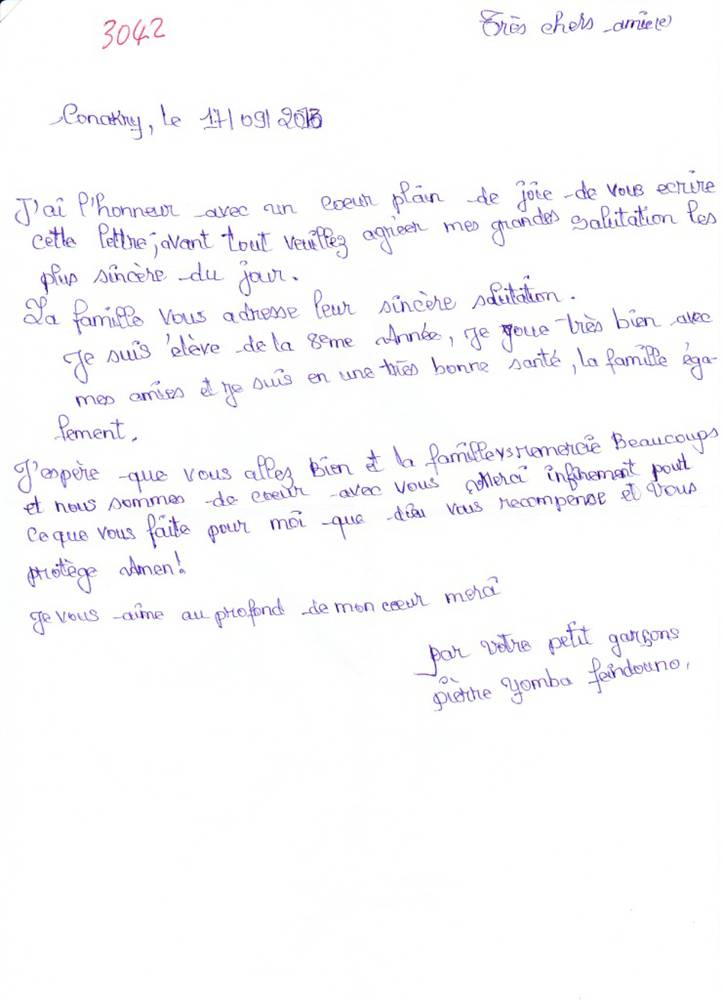 3042
Très chers amie(e)
Conakry, le 17/09/2013
J'ai l'honneur avec un coeur plain de joie de vous ecrire
cette lettre; avant tout veuillez agréer mes grandes salutation les
plus sincère du jour.
La famille vous adresse leur sincère salutation.
Je suis élève de la 8eme Année, Je joue très bien avec
mes amies et je suis en une très bonne santé, la famille éga-
lement.
J'espère que vous allez Bien et la famille vs remercie Beaucoups
et nous sommes de coeur avec vous Merci infinement pout
ce que vous faite pour moi que dieu vous recompense et vous
protège Amen!
Je vous aime au profond de mon coeur merci
par votre petit garçons
pierre yomba feindouno,